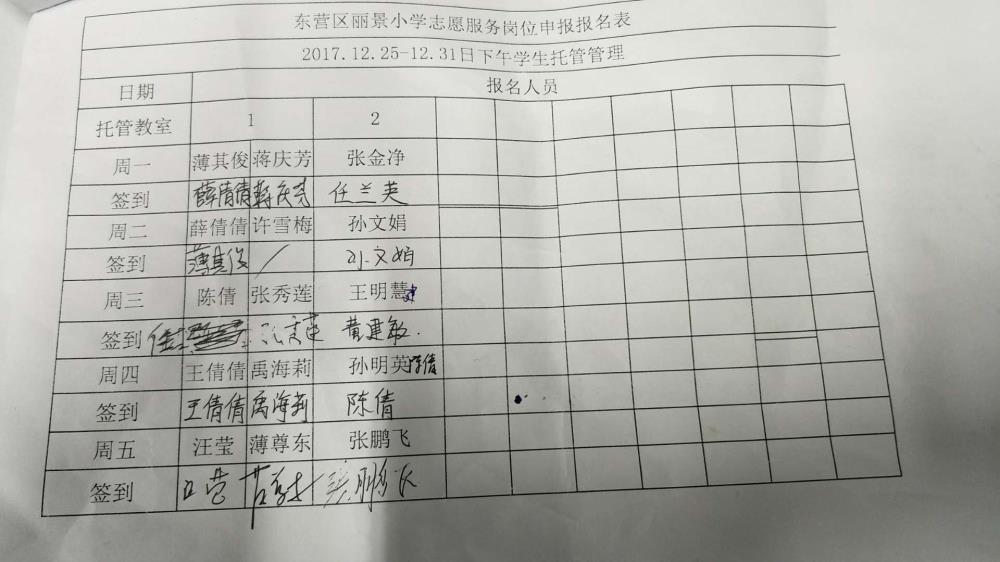 东营区丽景小学志愿服务岗位申报报名表
2017.12.25-12.31日下午学生托管管理
日期 报名人员
托管教室 1 2
周一 薄其俊 蒋庆芳 张金净
签到 薛倩倩 蒋庆芳 任兰英
周二 薛倩倩 许雪梅 孙文娟
签到 薄其俊 / 孙文娟
周三 陈倩 张秀莲 王明慧
签到 黄建敏.
周四 王倩倩 禹海莉 孙明英 陈倩
签到 王倩倩 禹海莉 陈倩
周五 汪莹 薄尊东 张鹏飞
签到 张鹏飞